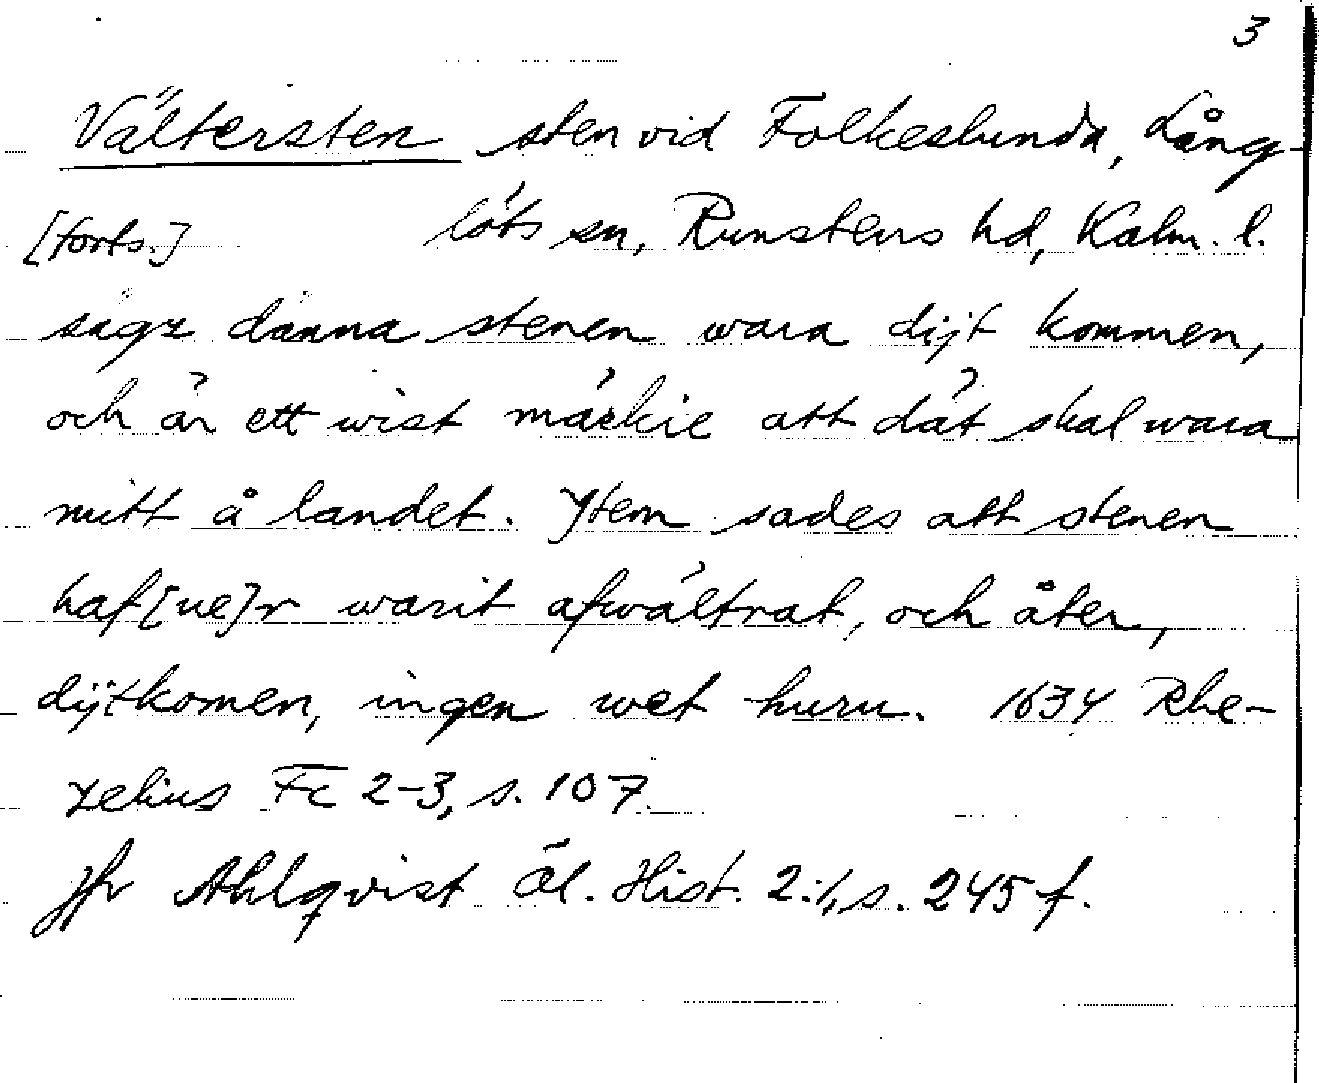 3
Vältersten sten vid Folkeslunda, Lång-
[forts.] löts sn, Runstens hd, Kalm. l.
sägz dänna stenen wara dijt kommen,
och är ett wist märkie att dät skal wara
mitt å landet. Ytem sades att stenen
haf[ue]r warit afwältrat, och åter,
dijtkomen, ingen wet huru. 1634 Rhe-
zelius Fc 2-3, s. 107.
jfr Ahlqvist Öl. Hist. 2:1, s. 245 f.